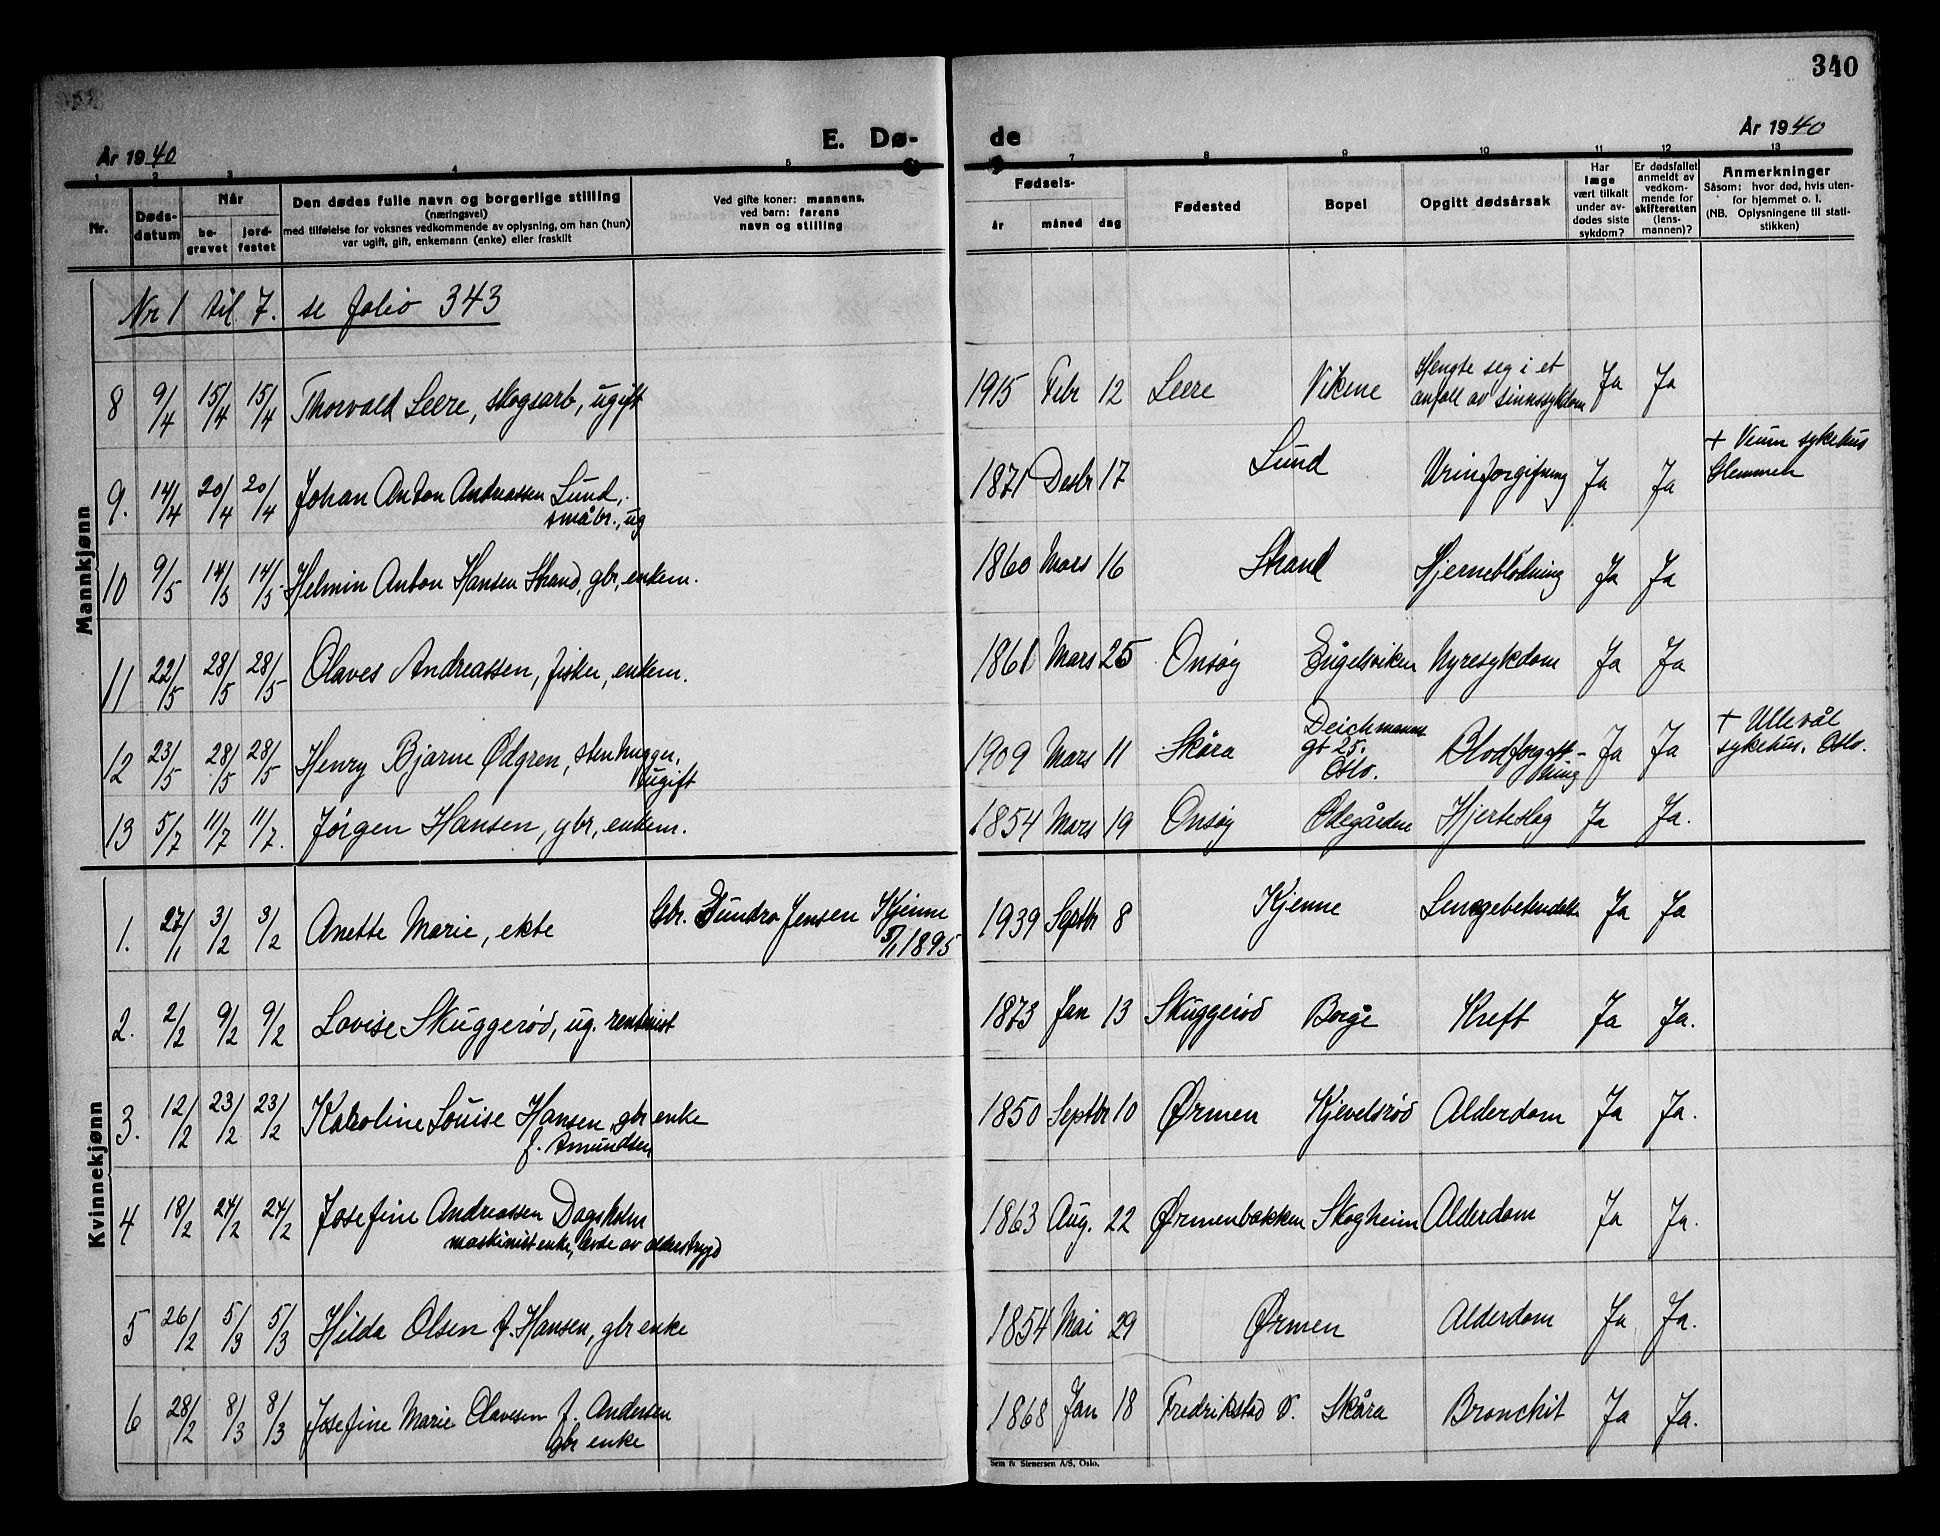 340
År 1940
E. Dø-
de
År 1940
1 2 3 4 5 7 8 9 10 11 12 13
Nr. Døds-datum Når be-gravet jord-festet Den dødes fulle navn og borgerlige stilling (næringsvei) med tilføielse for voksnes vedkommende av oplysning, om han (hun) var ugift, gift, enkemann (enke) eller fraskilt Ved gifte koner: mannens, ved barn: farens navn og stilling Fødsels- år måned dag Fødested Bopel Opgitt dødsårsak Har læge vært tilkalt under av-dødes siste sykdom? Er dødsfallet anmeldt av vedkom-mende for skifteretten (lens-mannen)? Anmerkninger Såsom: hvor død, hvis uten-for hjemmet o. l. (NB. Oplysningene til stati-stikken)
Mannkjønn
Nr 1 til 7. se folio 343
8 9/4 15/4 15/4 Thorvald Leere, skogsarb, ugift 1915 Febr 12 Leere Vikene Hengte seg i et anfall av sinnssykdom Ja Ja
9. 14/4 20/4 20/4 Johan Anton Andreassen Lund, småbr., ug 1871 Desbr 17 Lund Urinforgiftning Ja Ja + Veum sykehus Glemmen
10 9/5 14/5 14/5 Helmin Anton Hansen Strand, gbr, enkem. 1860 Mars 16 Strand Hjerneblødning Ja Ja
11 22/5 28/5 28/5 Olaves Andreassen, fisker, enkem. 1861 Mars 25 Onsøy Engelsviken Nyresykdom Ja Ja
12 23/5 28/5 28/5 Henry Bjarne Ødgren, stenhugger, ugift 1909 Mars 11 Skåra Deichmanns gt 25. Oslo. Blodforgift-ning Ja Ja + Ullevål sykehus, Oslo.
13 5/7 11/7 11/7. Jørgen Hansen, gbr, enkem. 1854 Mars 19 Onsøy Ødegården Hjerteslag Ja Ja.
Kvinnekjønn
1. 27/1 3/2 3/2 Anette Marie, ekte Gbr. Jensen Kjenne 5/1 1895 1939 Septbr 8 Kjenne Lungebetendelse Ja Ja
2. 2/2 9/2 9/2 Lovise Skuggerød, ug. rentenist 1873 Jan 13 Skuggerød Borge Kreft Ja Ja.
3. 12/2 23/2 23/2 Karoline Louise Hansen, gbr enke f. Amundsen 1850 Septbr 10 Ørmen Kjevelsrød Alderdom Ja Ja.
4 18/2 24/2 24/2 Josefine Andreassen Dagsholm maskinist enke, levde av alderstrygd 1863 Aug. 22 Ørmenbakken Skogheim Alderdom Ja Ja.
5 26/2 5/3 5/3 Hilda Olsen f. Hansen, gbr enke 1854 Mai 29 Ørmen Alderdom Ja Ja.
6 28/2 8/3 8/3 Josefine Marie Olavesen f. Andersen gbr enke 1868 Jan 18 Fredrikstad V. Skåra Bronchit Ja Ja.
Sem & Stenersen A/S, Oslo.